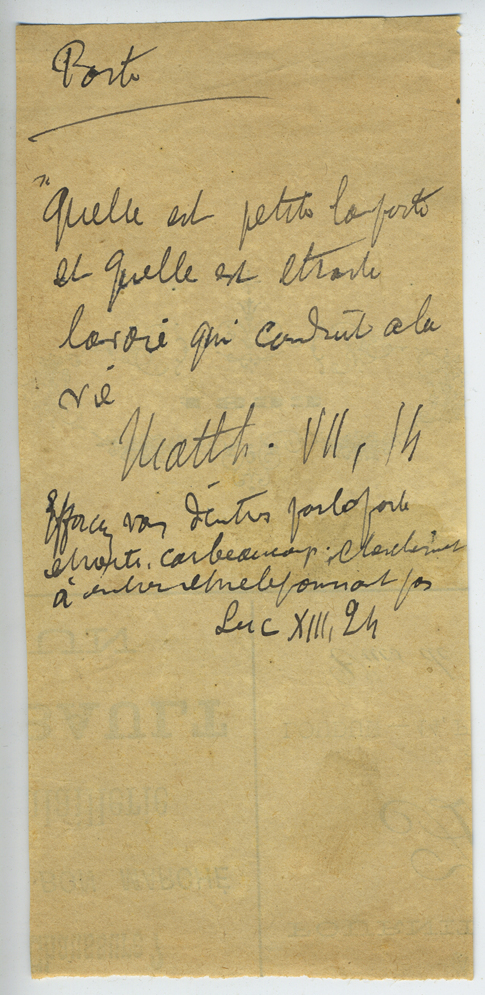 Porte
"Quelle est petite la porte
et quelle est etroite
la voie qui conduit a la
vie
Matth. VII, 14
Efforcez vous d'entrer par la porte
etroite, car beaucoup chercheront
à entrer et ne le pourront pas
Luc XIII, 24